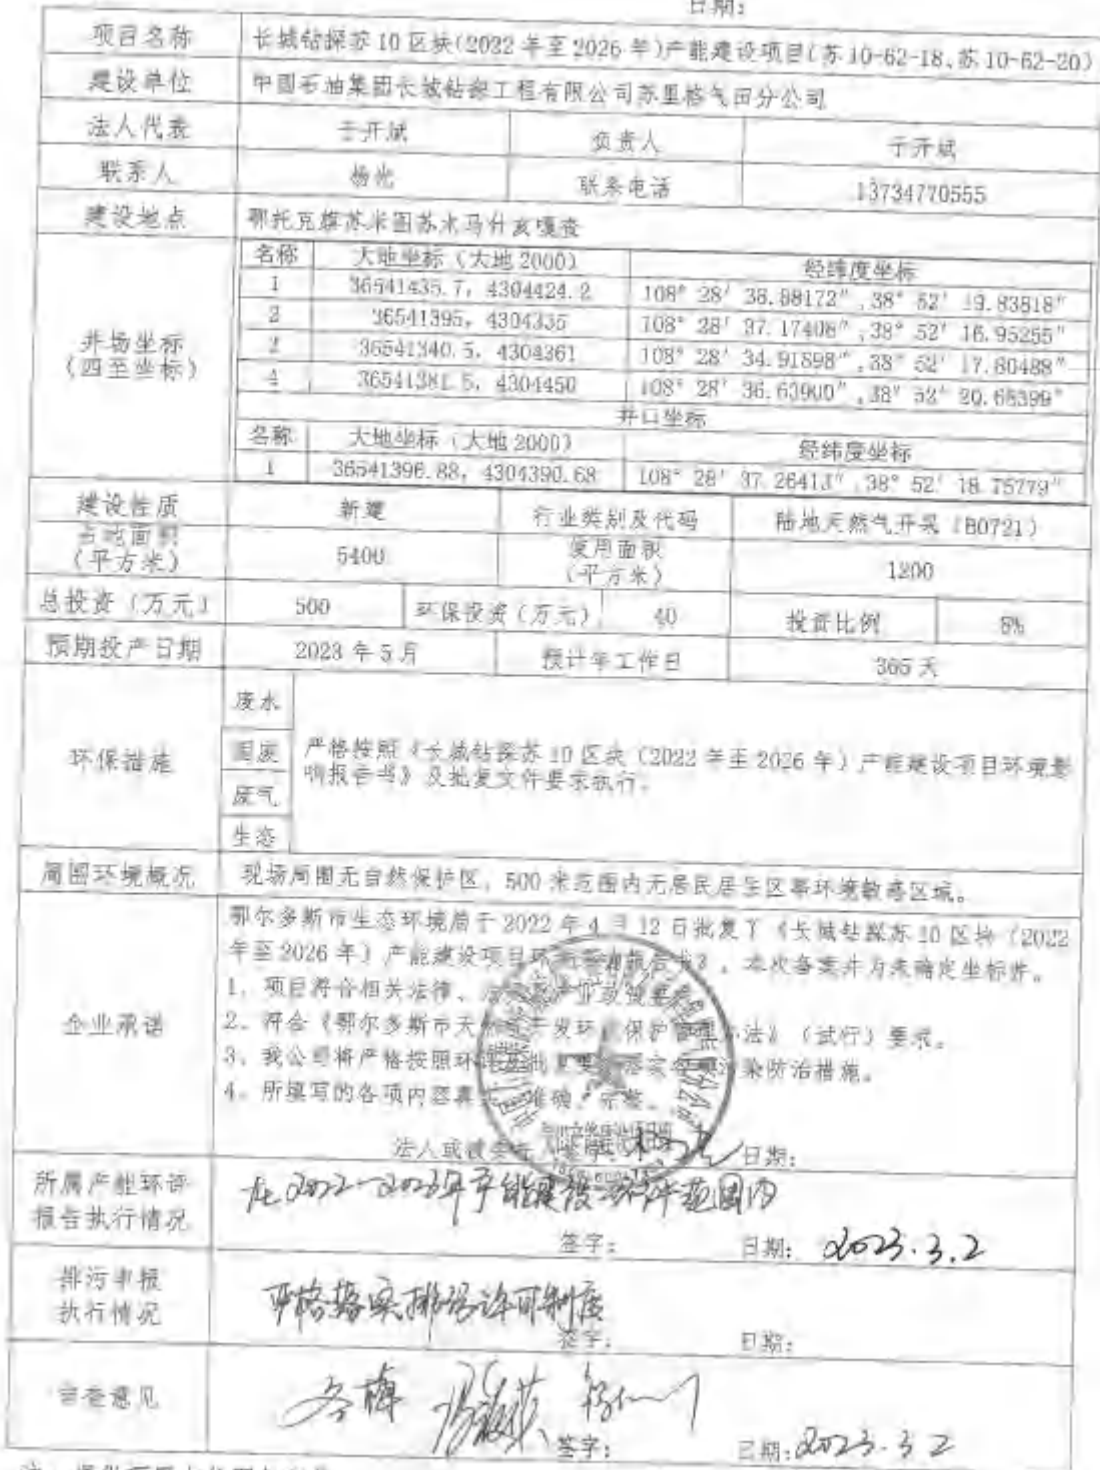 日期：
项目名称 长城钻探苏10区块(2022年至2026年)产能建设项目(苏10-62-18、苏10-62-20)
建设单位 中国石油集团长城钻探工程有限公司苏里格气田分公司
法人代表 于开斌 负责人 于开斌
联系人 杨光 联系电话 13734770555
建设地点 鄂托克旗苏米图苏木马什亥嘎查
井场坐标
(四至坐标)
名称 大地坐标（大地2000） 经纬度坐标
1 36541435.7，4304424.2 108° 28′ 38.88172″,38° 52′ 19.83818″
2 36541395，4304335 108° 28′ 37.17408″,38° 52′ 16.95255″
3 36541340.5，4304361 108° 28′ 34.91898″,38° 52′ 17.80488″
4 36541381.5，4304450 108° 28′ 36.63900″,38° 52′ 20.68399″
井口坐标
名称 大地坐标（大地2000） 经纬度坐标
1 36541396.88，4304390.68 108° 28′ 37.26413″,38° 52′ 18.75779″
建设性质 新建 行业类别及代码 陆地天然气开采（B0721）
占地面积
（平方米） 5400 使用面积
（平方米） 1200
总投资（万元） 500 环保投资（万元） 40 投资比例 8%
预期投产日期 2023年5月 预计年工作日 365天
环保措施
废水
固废
废气
生态
严格按照《长城钻探苏10区块（2022年至2026年）产能建设项目环境影
响报告书》及批复文件要求执行。
周围环境概况 现场周围无自然保护区，500米范围内无居民居住区等环境敏感区域。
企业承诺
鄂尔多斯市生态环境局于2022年4月12日批复了《长城钻探苏10区块（2022
年至2026年）产能建设项目环境影响报告书》，本次备案井为未确定坐标井。
1、项目符合相关法律、法规及产业政策要求。
2、符合《鄂尔多斯市天然气开发环境保护管理办法》（试行）要求。
3、我公司将严格按照环评及批复要求落实各项污染防治措施。
4、所填写的各项内容真实、准确、完整。
法人或被委托人 日期：
所属产能环评
报告执行情况
在2022-2026年产能建设环评范围内
签字： 日期：2023.3.2
排污申报
执行情况
严格落实排污许可制度
签字： 日期：
审查意见
签字： 日期：2023.3.2